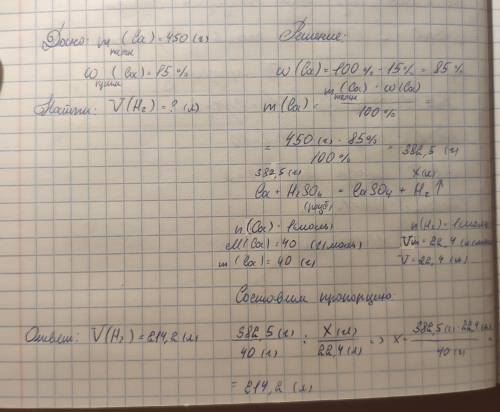 Дано: m техн (Ca) = 450 (г)
ω прим (Ca) = 15 %
Найти: V(H₂) = ? (л)
Решение:
ω (Ca) = 100 % - 15 % = 85 %
m (Ca) = m техн (Ca) · ω(Ca) / 100 % =
= 450 (г) · 85 % / 100 % = 382,5 (г)
382,5 (г) X (л)
Ca + H₂SO₄ = CaSO₄ + H₂↑
(разб)
n(Ca) = 1 моль n(H₂) = 1 моль
M(Ca) = 40 (г/моль) Vm = 22,4
m (Ca) = 40 (г) V = 22,4 (л)
Составим пропорцию:
382,5 (г) / 40 (г) : X (л) / 22,4 (л) => X = 382,5 (г) · 22,4 (л) / 40 (г) =
= 214,2 (л)
Ответ: V(H₂) = 214,2 (л)